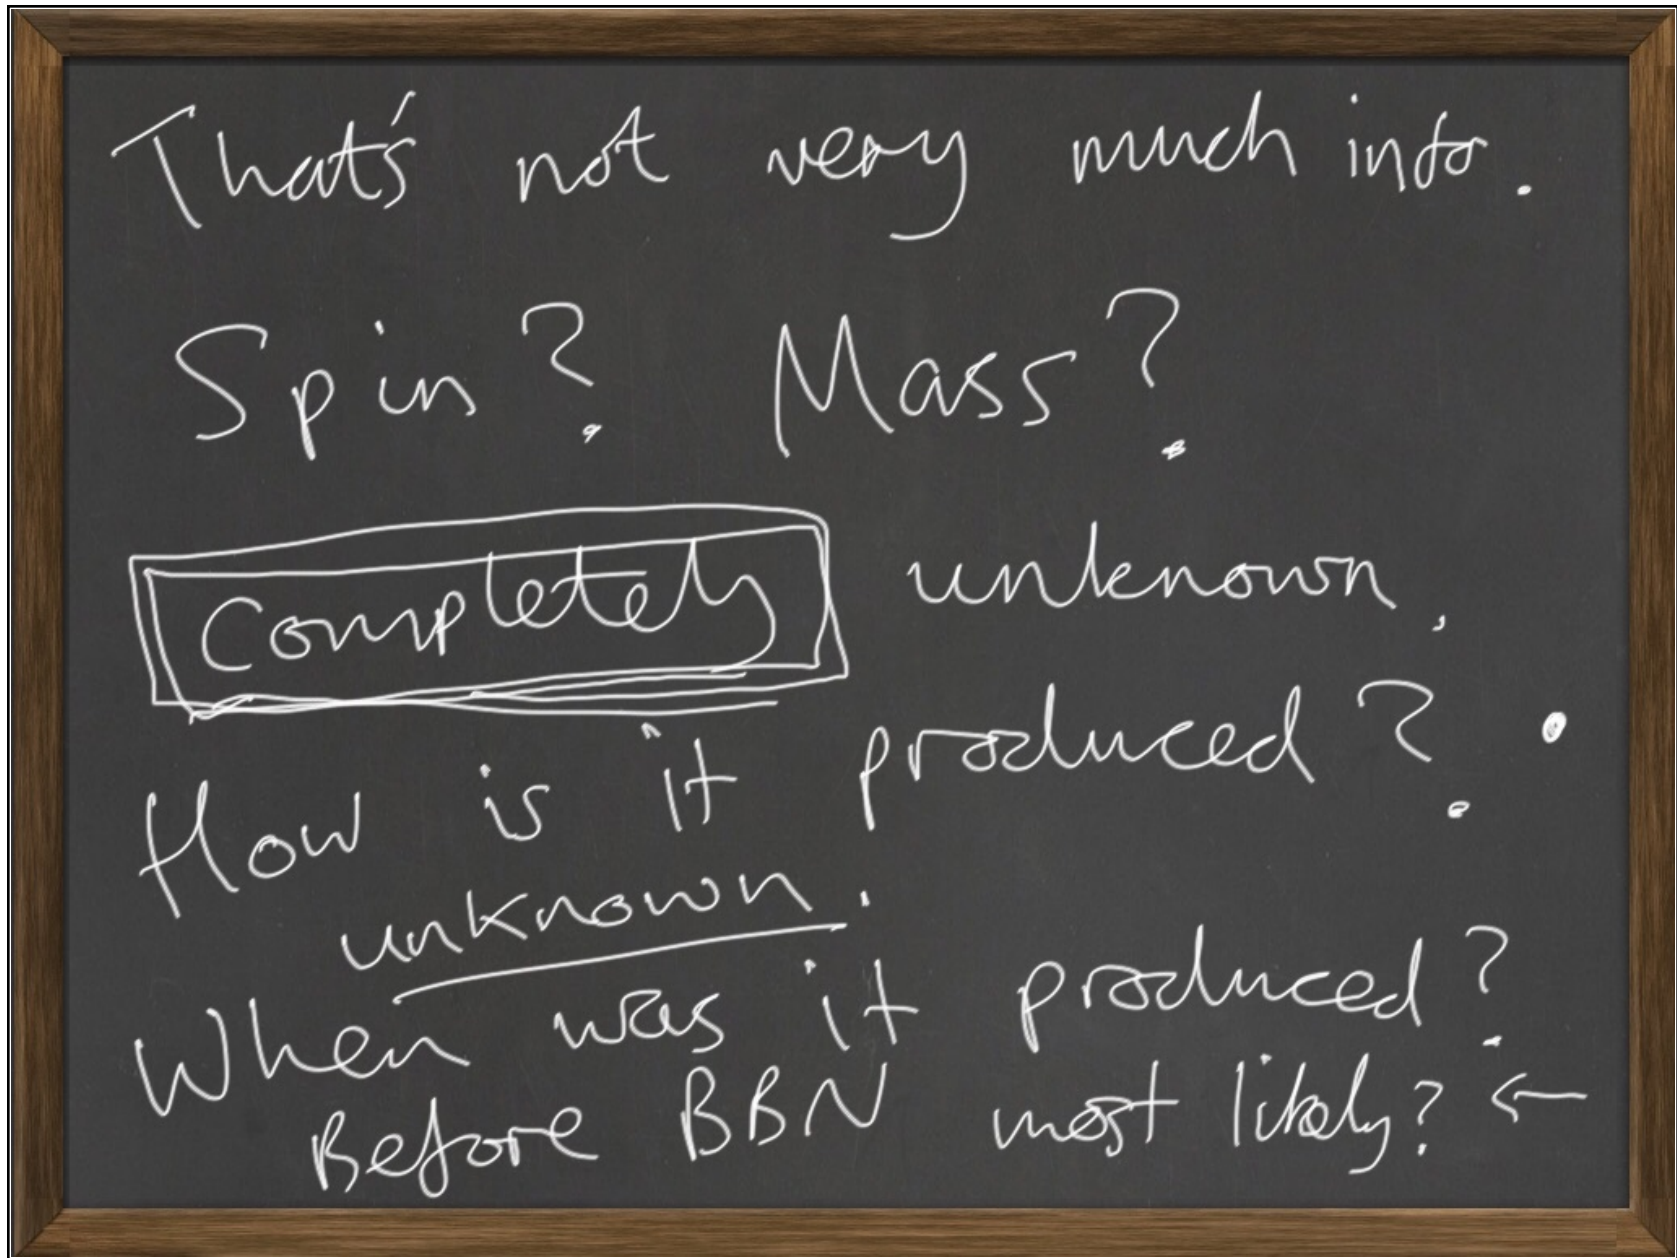 That's not very much info.
Spin? Mass?
Completely unknown.
How is it produced?
unknown.
When was it produced?
Before BBN most likely? ←